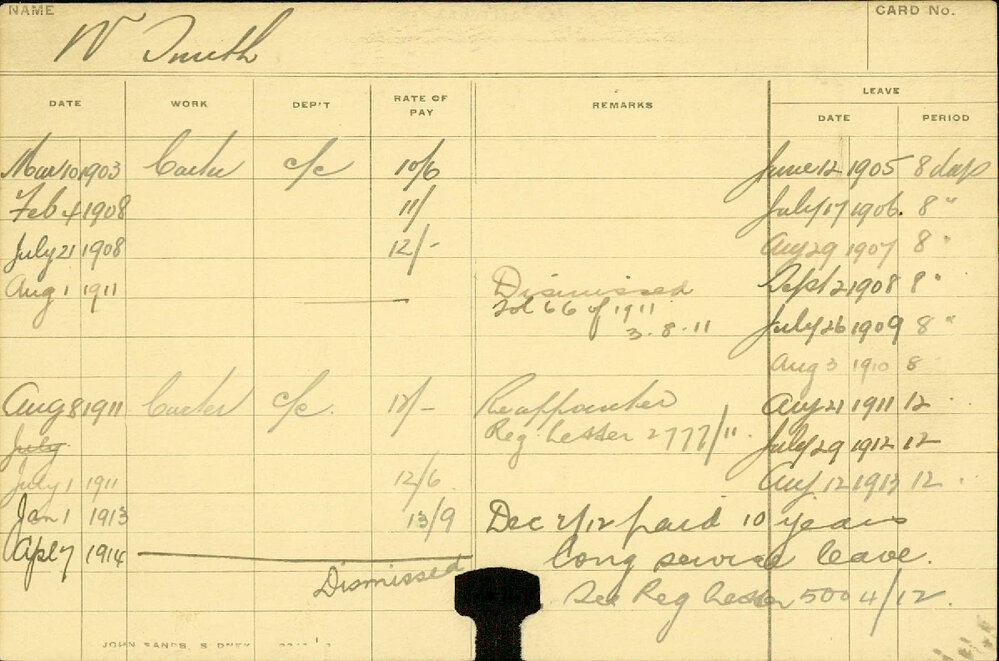 NAME
W Smith
CARD No.
DATE WORK DEP'T RATE OF PAY REMARKS LEAVE
DATE PERIOD
Mar 10 1903 Carter c/c 10/6 June 12 1905 8 days
Feb 4 1908 11/ July 17 1906. 8 "
July 21 1908 12/- Aug 29 1907 8 "
Aug 1 1911 Dismissed Sept 2 1908 8 "
Fol 66 of 1911
3.8.11 July 26 1909 8 "
Aug 3 1910 8
Aug 8 1911 Carter c/c. 12/- Reappointed Aug 21 1911 12
July Reg. Letter 2777/11. July 29 1912 12
July 1 1911 12/6. Aug 12 1913 12
Jan 1 1913 13/9 Dec 2/12 paid 10 years
Apl 7 1914 long service leave.
Dismissed See Reg Letter 5004/12.
JOHN SANDS, SYDNEY